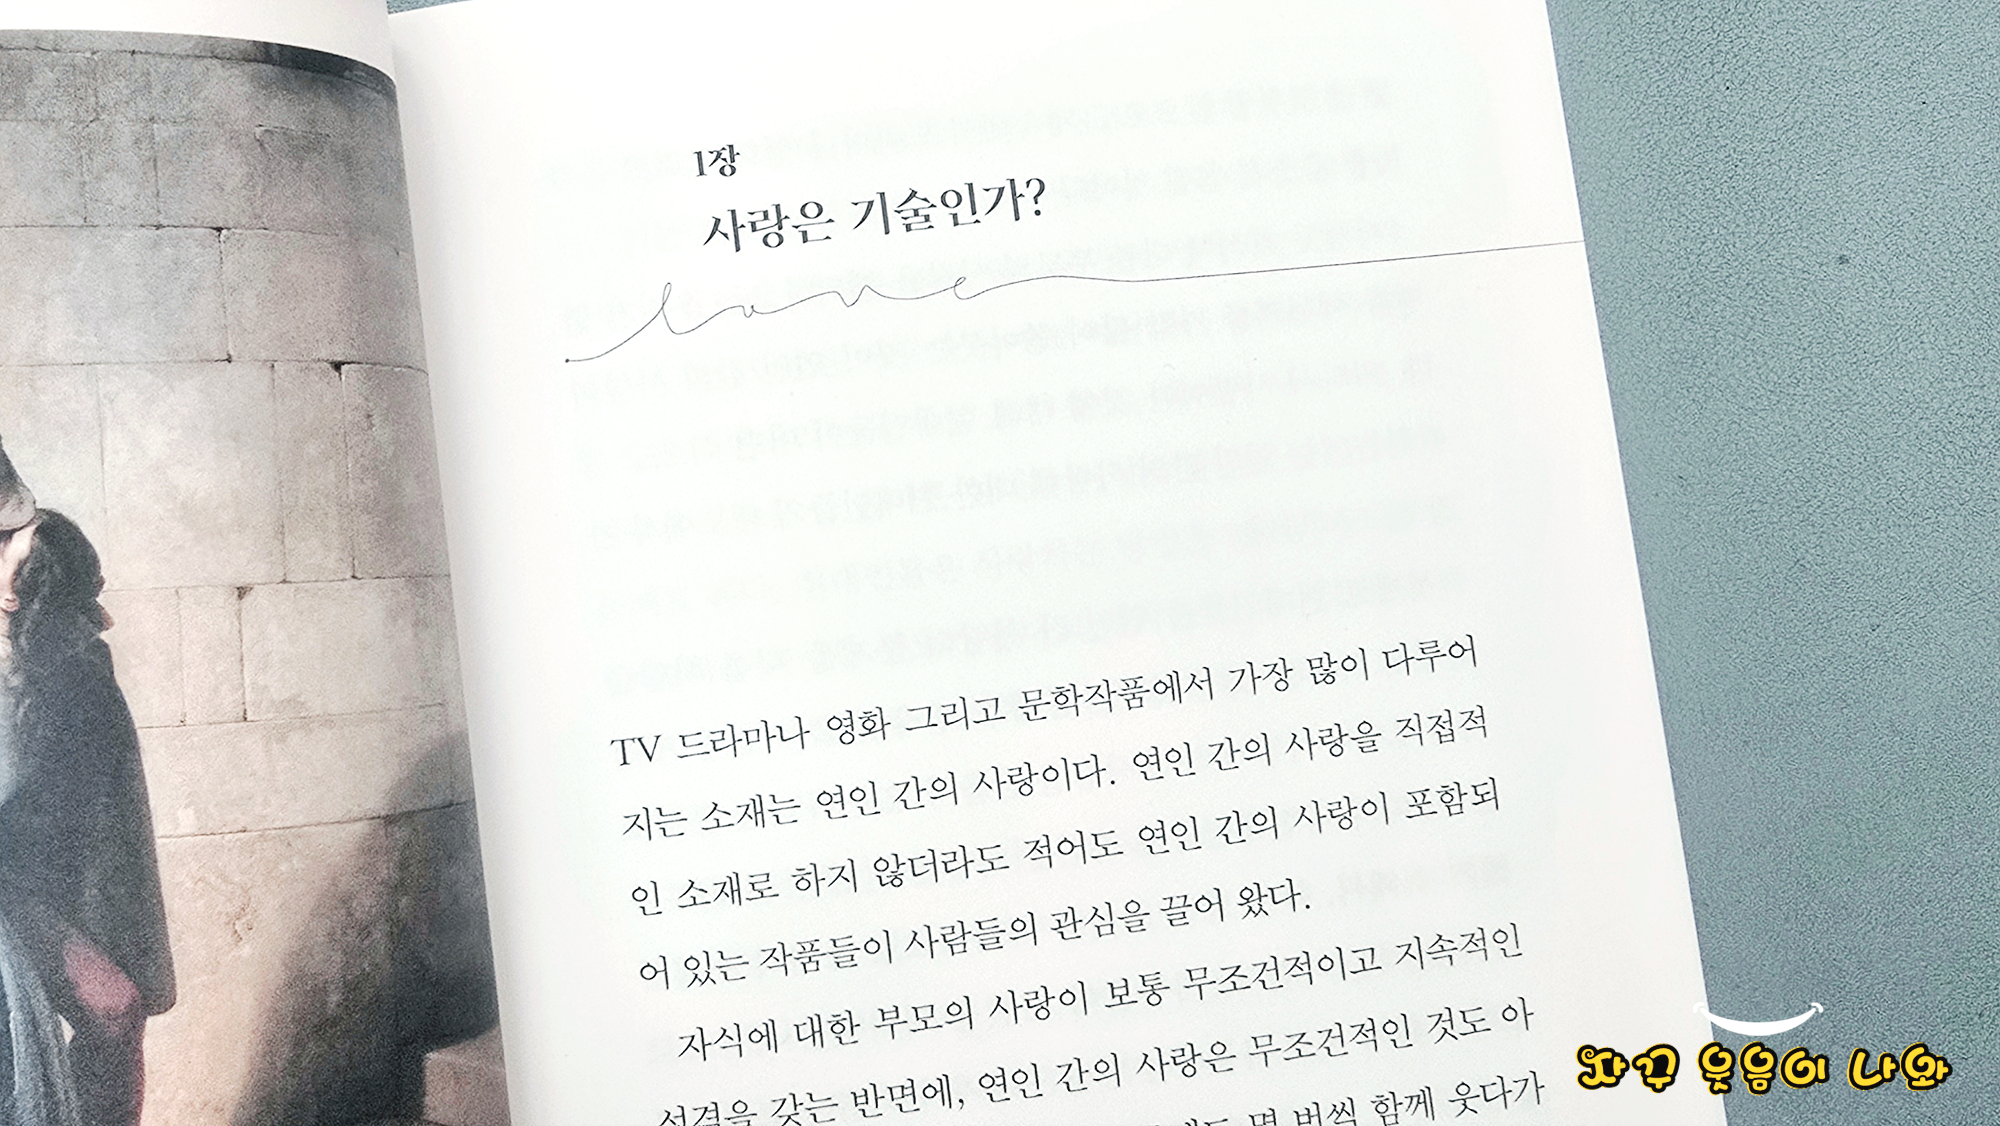 1장
사랑은 기술인가?
love
TV 드라마나 영화 그리고 문학작품에서 가장 많이 다루어
지는 소재는 연인 간의 사랑이다. 연인 간의 사랑을 직접적
인 소재로 하지 않더라도 적어도 연인 간의 사랑이 포함되
어 있는 작품들이 사람들의 관심을 끌어 왔다.
자식에 대한 부모의 사랑이 보통 무조건적이고 지속적인
성격을 갖는 반면에, 연인 간의 사랑은 무조건적인 것도 아
몇 번씩 함께 웃다가
자꾸 웃음이 나와